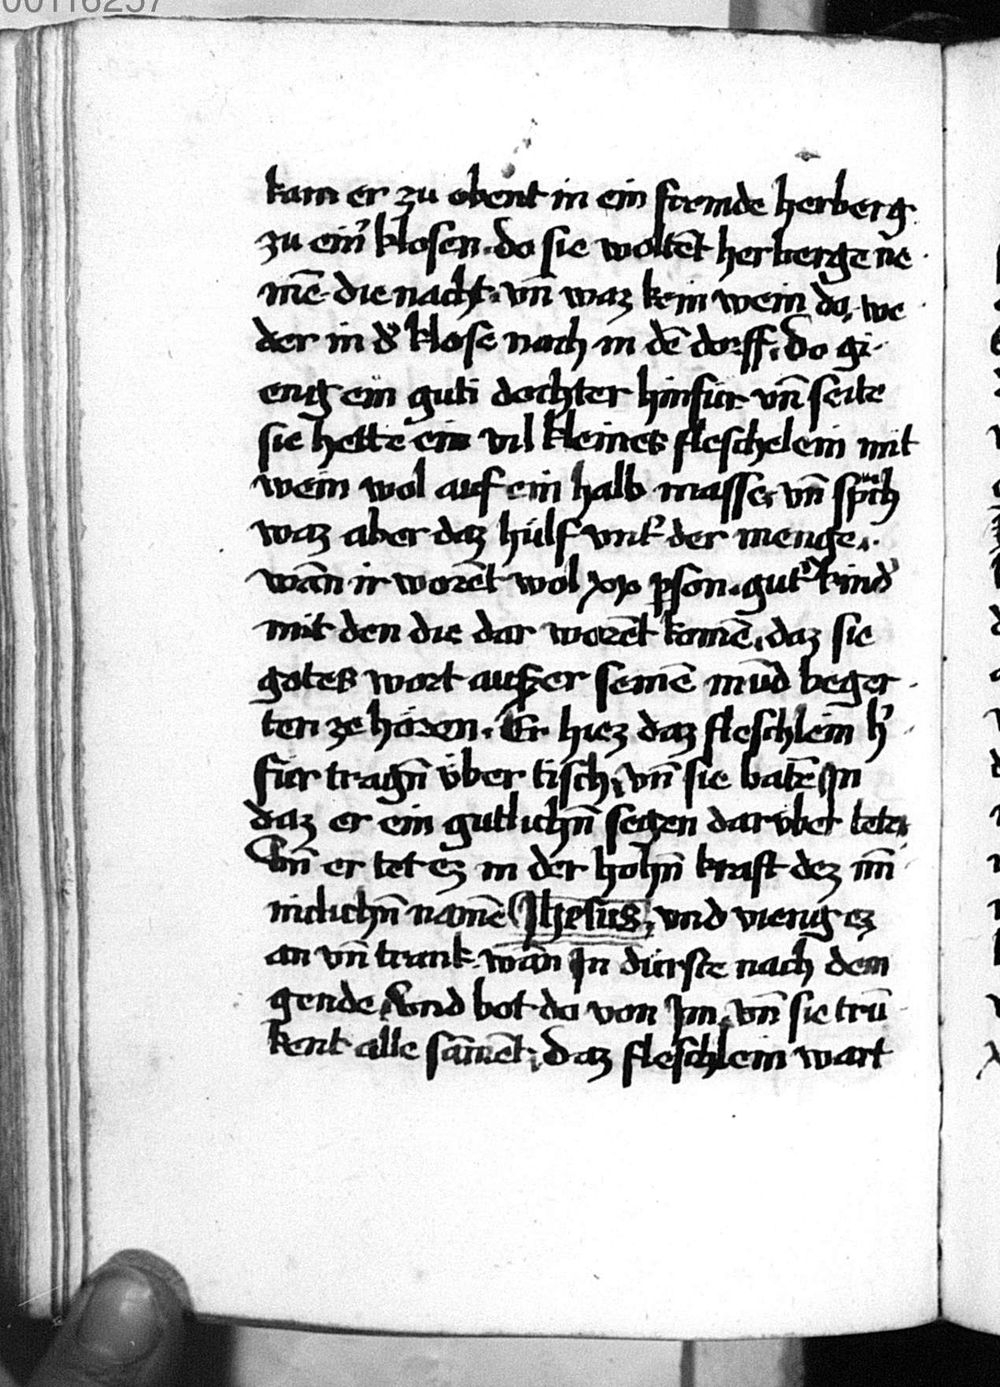 00116257
kam er zu obent in ein fremde herberg
zu ein̾ klosen. do sie woltēt herberge ne
mē die nacht. vn̄ waz kein wein do. we
der in d̾ klose nach in dē dorff. Do gi
eng ein guti dochter hinfür vn̄ seite
sie hette ein vil kleines fleschelein mit
wein wol auf ein halb masse. vn̄ sp̄ch
waz aber daz hülf vnt̾ der menge.
wān ir worēt wol xx p̱son. gut̾ kind̾
mit den die dar worēt komē. daz sie
gotes wort auszer seinē mūd beger
ten ze hören. Er hiez daz fleschlein h̾
für tragn̄ über tisch. vn̄ sie batē Jn
daz er ein gutlichn̄ segen darvber tete.
Vn̄ er tet ez in der hohn̄ kraft dez mī
niclichn̄ namē Jhesus. vnd vieng ez
an vn̄ trank. wān Jn dürste nach dem
gende. vnd bot do von Jm. vn̄ sie trū
kent alle sāment. daz fleschlein wart